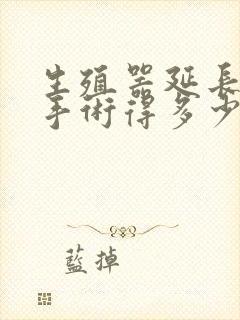 生殖器延長
手術得多少
藍掉